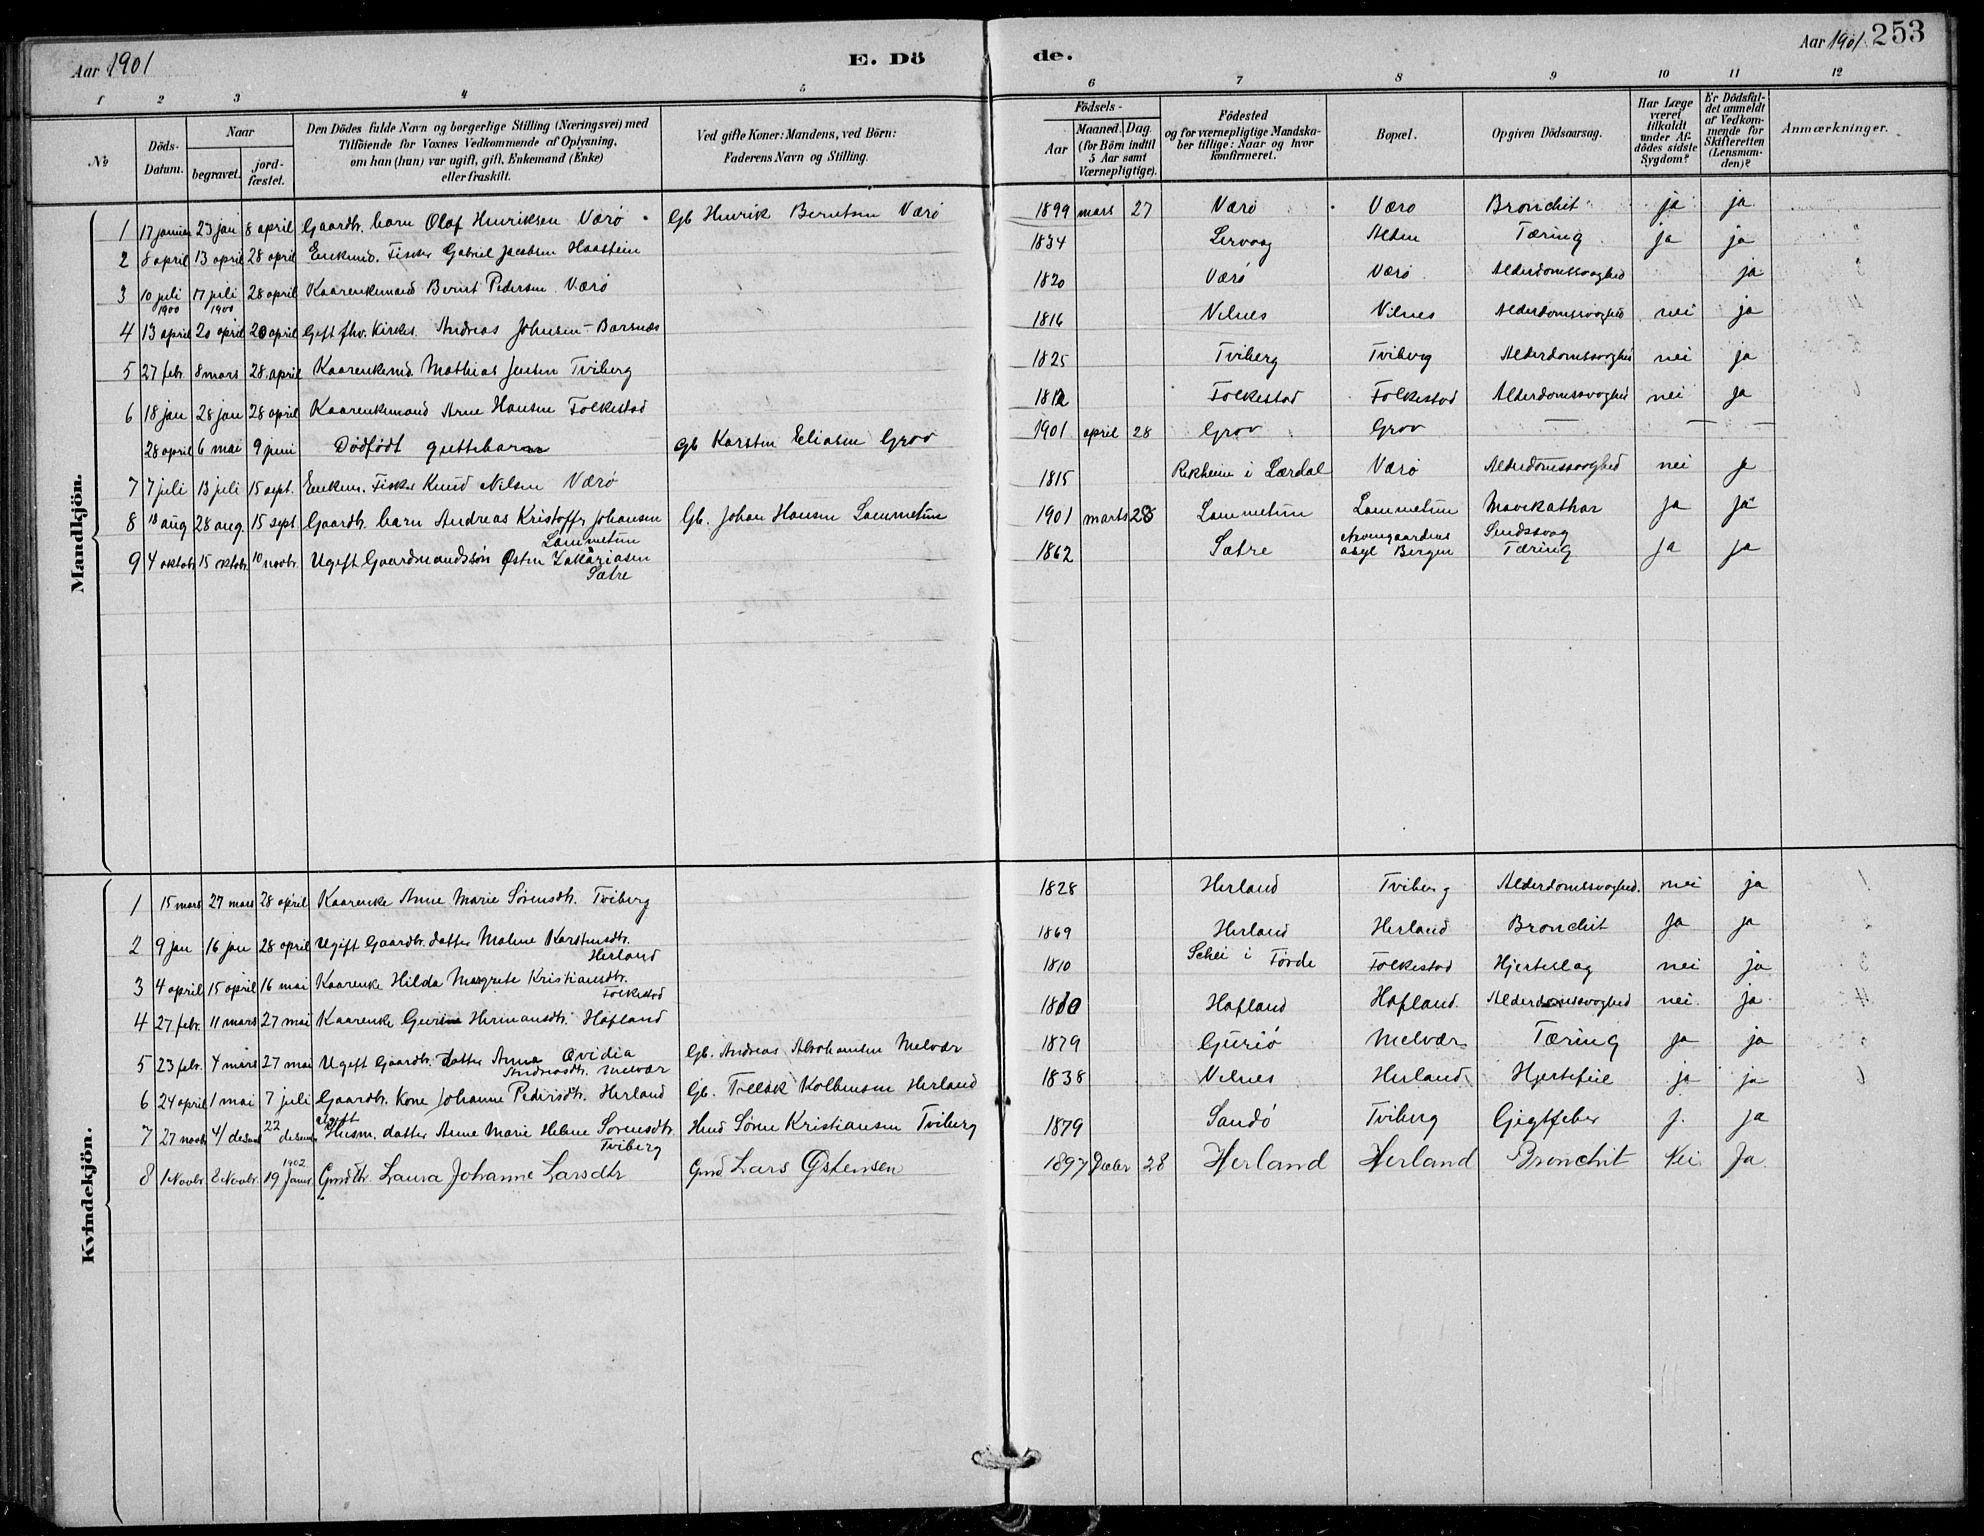 Aar 1901
E. Dö
de.
Aar 1901
253
1 2 3 4 5 6 7 8 9 10 11 12
No
Döds-Datum.
Naar
begravet.
jord-fæstet.
Den Dödes fulde Navn og borgerlige Stilling (Næringsvei) med
Tilföiende for Voxnes Vedkommende af Oplysning,
om han (hun) var ugift, gift, Enkemand (Enke)
eller fraskilt.
Ved gifte Koner: Mandens, ved Börn:
Faderens Navn og Stilling.
Födsels-
Aar
Maaned. Dag.
(for Börn indtil
5 Aar samt
Værnepligtige).
Födested
og for værnepligtige Mandska-
ber tillige: Naar og hvor
konfirmeret.
Bopæl.
Opgiven Dödsaarsag.
Har Læge
været
tilkaldt
under Af-
dödes sidste
Sygdom?
Er Dödsfal-
det anmeldt
af Vedkom-
mende for
Skifteretten
(Lensman-
den)?
Anmærkninger.
Mandkjön.
1 17 januar 23 jan 8 april Gaardbr. barn Olaf Henriksen Værø Gb Henrik Berntsen Værö 1899 mars 27 Værö Værö Bronchit ja ja
2 8 april 13 april 28 april Enkmd. Fisker Gabriel Jacobsen Haastein 1834 Lervaag Alden Tæring ja ja
3 10 juli 1900 17 juli 1900 28 april Kaarenkemand Bernt Pedersen Værö 1820 Værö Værö Alderdomssvaghed ja
4 13 april 20 april 20 april Gift fhv. Kirkes. Andreas Johnsen-Barsnæs 1816 Vilnes Vilnes Alderdomssvaghed nei ja
5 27 febr. 8 mars 28. april Kaarenkemd. Mathias Jensen Tviberg 1825 Tviberg Tviberg Alderdomssvaghed nei ja
6 18 jan 28 jan 28 april Kaarenkemand Arne Hansen Folkestad 1812 Folkestad Folkestad Alderdomssvaghed nei ja
28 april 6 mai 9 juni Dødfødt guttebarn Gb Karsten Eliasen Grov 1901 april 28 Grov Grov — — —
7 7 juli 13 juli 15 sept. Enkem. Fisker Knud Nilsen Værö 1815 Rikheim i Lærdal Værö Alderdomssvaghed nei ja
8 18 aug 28 aug. 15 sept. Gaardb. barn Andreas Kristoffr Johansen Lammetun Gb. Johan Hansen Lammetun 1901 marts 28 Lammetun Lammetun Mavekathar ja ja
9 4 oktobr 15 oktobr. 10 novbr. Ugift Gaardmandssøn Østen Zakariasen Sætre 1862 Sætre asyl Bergen Sindssvag Tæring ja ja
Kvindekjön.
1 15 mars 27 mars 28 april Kaarenke Anne Marie Sørensdtr. Tviberg 1828 Herland Tviberg Alderdomssvaghed. nei ja
2 9 jan 16 jan 28 april Ugift Gaardbr. datter Malene Karstensdtr. Herland 1869 Herland Herland Bronchit ja ja
3 4 april 15 april 16 mai Kaarenke Hilda Margrete Kristiansdtr. Folkestad 1810 Schei i Førde Folkestad Hjerteslag nei ja
4 27 febr. 11 mars 27 mai Kaarenke Gurine Hermansdtr. Hofland 1810 Hofland Hofland Alderdomssvaghed nei ja
5 23 febr. 4 mars 27 mai Ugift Gaardbr. datter Anna Ovidia Andreasdtr. Melvær Gb. Andreas Abrahamsen Melvær 1879 Guriö Melvær Tæring ja ja
6 24 april 1 mai 7 juli Gaardbr. Kone Johanne Pedersdtr. Herland Gb. Tellak Kolbensen Herland 1838 Vilnes Herland Hjertefeil ja ja
7 27 novbr 4/ desem 22 desem Ugift Husm. datter Anne Marie Helene Sørensdtr. Tviberg Hmd Søren Kristiansen Tviberg 1879 Sandö Tviberg Gigtfeber j. ja
8 1 Novbr 8 Novbr. 19 Januar 1902 Gmdbr. Laura Johanne Larsdtr Gmd Lars Østensen 1897 Decbr 28 Herland Herland Bronchit Nei Ja